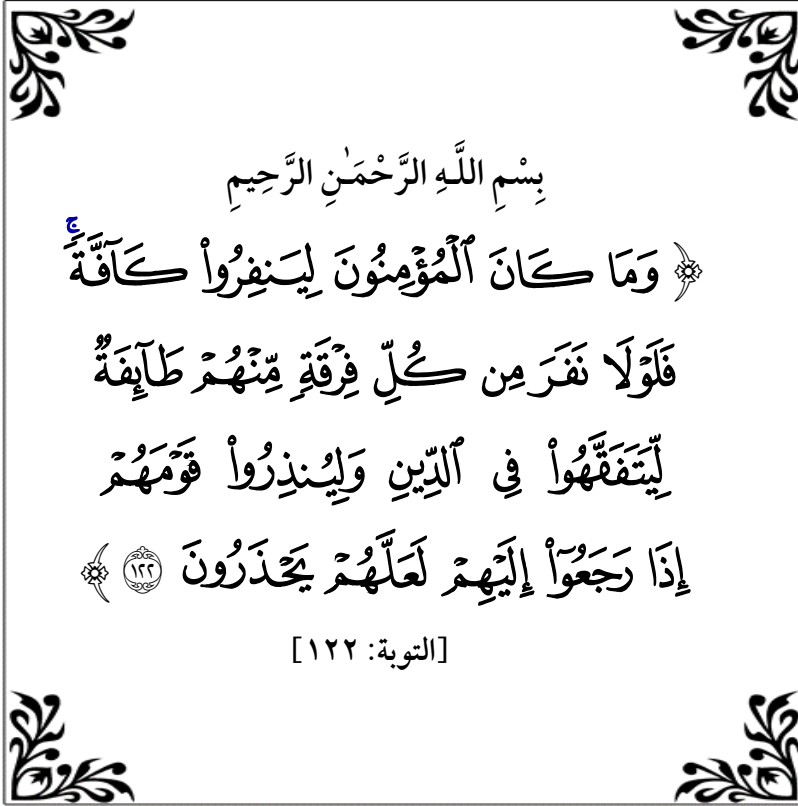 بِسْمِ اللَّهِ الرَّحْمَـٰنِ الرَّحِيمِ
﴿ وَمَا كَانَ ٱلْمُؤْمِنُونَ لِيَنفِرُوا۟ كَآفَّةًۚ
فَلَوْلَا نَفَرَ مِن كُلِّ فِرْقَةٍ مِّنْهُمْ طَآئِفَةٌ
لِّيَتَفَقَّهُوا۟ فِى ٱلدِّينِ وَلِيُنذِرُوا۟ قَوْمَهُمْ
إِذَا رَجَعُوٓا۟ إِلَيْهِمْ لَعَلَّهُمْ يَحْذَرُونَ ١٢٢ ﴾
[التوبة: ١٢٢]